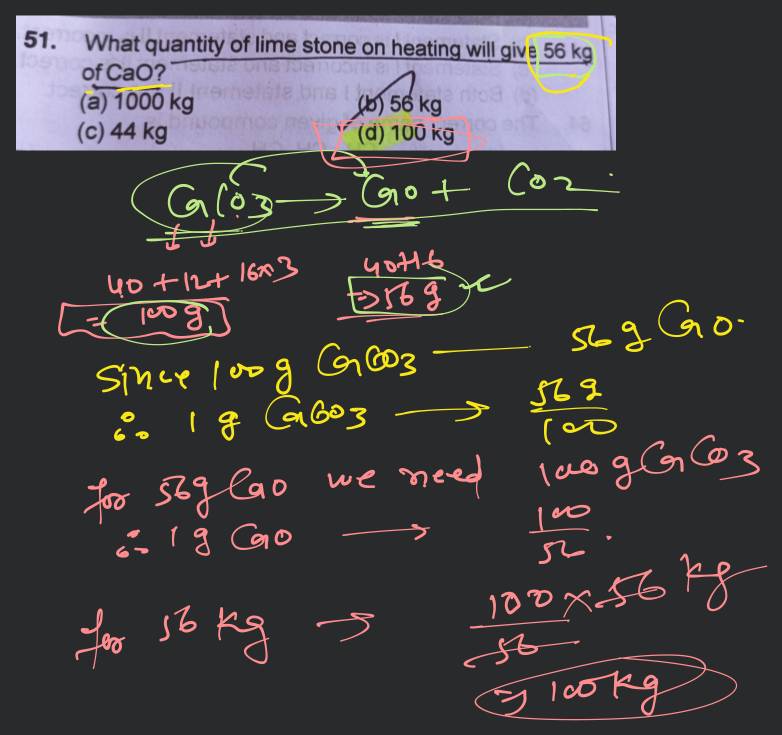 51. What quantity of lime stone on heating will give 56 kg
of CaO?
(a) 1000 kg (b) 56 kg
(c) 44 kg (d) 100 kg
CaCO3 → CaO + CO2
40 + 12 + 16×3 40+16
= 100 g ⇒ 56 g
Since 100 g CaCO3 — 56 g CaO.
∴ 1 g CaCO3 → 56 g / 100
for 56 g CaO we need 100 g CaCO3
∴ 1 g CaO → 100 / 56 .
for 56 kg → 100 × 56 kg / 56
⇒ 100 kg